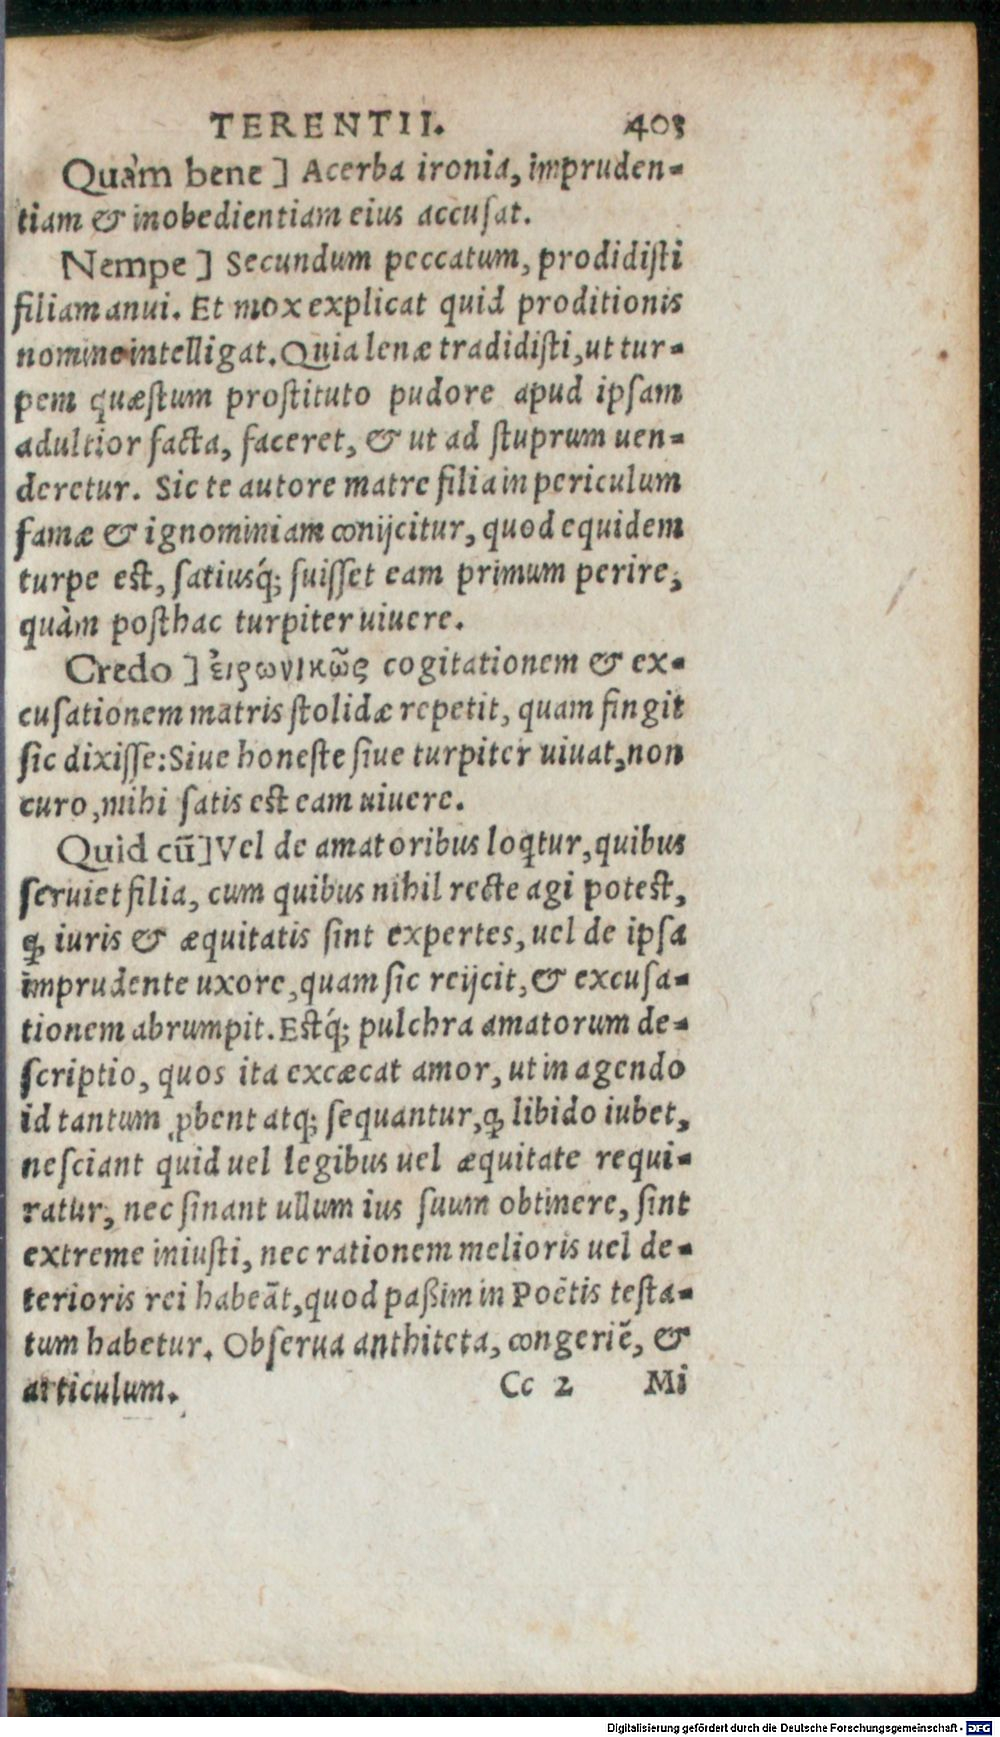 TERENTII. 403
Quàm bene ] Acerba ironia, impruden-
tiam & inobedientiam eius accusat.
Nempe ] Secundum peccatum, prodidisti
filiam anui. Et mox explicat quid proditionis
nomine intelligat. Quia lenæ tradidisti, ut tur-
pem quæstum prostituto pudore apud ipsam
adultior facta, faceret, & ut ad stuprum uen-
deretur. Sic te autore matre filia in periculum
famæ & ignominiam conijcitur, quod equidem
turpe est, satiusq́; fuisset eam primum perire,
quàm posthac turpiter uiuere.
Credo ] ἐιρωνικῶς cogitationem & ex-
cusationem matris stolidæ repetit, quam fingit
sic dixisse: Siue honeste siue turpiter uiuat, non
curo, mihi satis est eam uiuere.
Quid cū] Vel de amatoribus loqtur, quibus
seruiet filia, cum quibus nihil recte agi potest,
ꝙ iuris & æquitatis sint expertes, uel de ipsa
imprudente uxore, quam sic reijcit, & excusa-
tionem abrumpit. Estq́; pulchra amatorum de-
scriptio, quos ita excæcat amor, ut in agendo
id tantum ꝓbent atq; sequantur, ꝙ libido iubet,
nesciant quid uel legibus uel æquitate requi-
ratur, nec sinant ullum ius suum obtinere, sint
extreme iniusti, nec rationem melioris uel de-
terioris rei habeāt, quod paßim in Poëtis testa-
tum habetur. Obserua anthiteta, congeriē, &
articulum. Cc 2 Mi
Digitalisierung gefördert durch die Deutsche Forschungsgemeinschaft - DFG